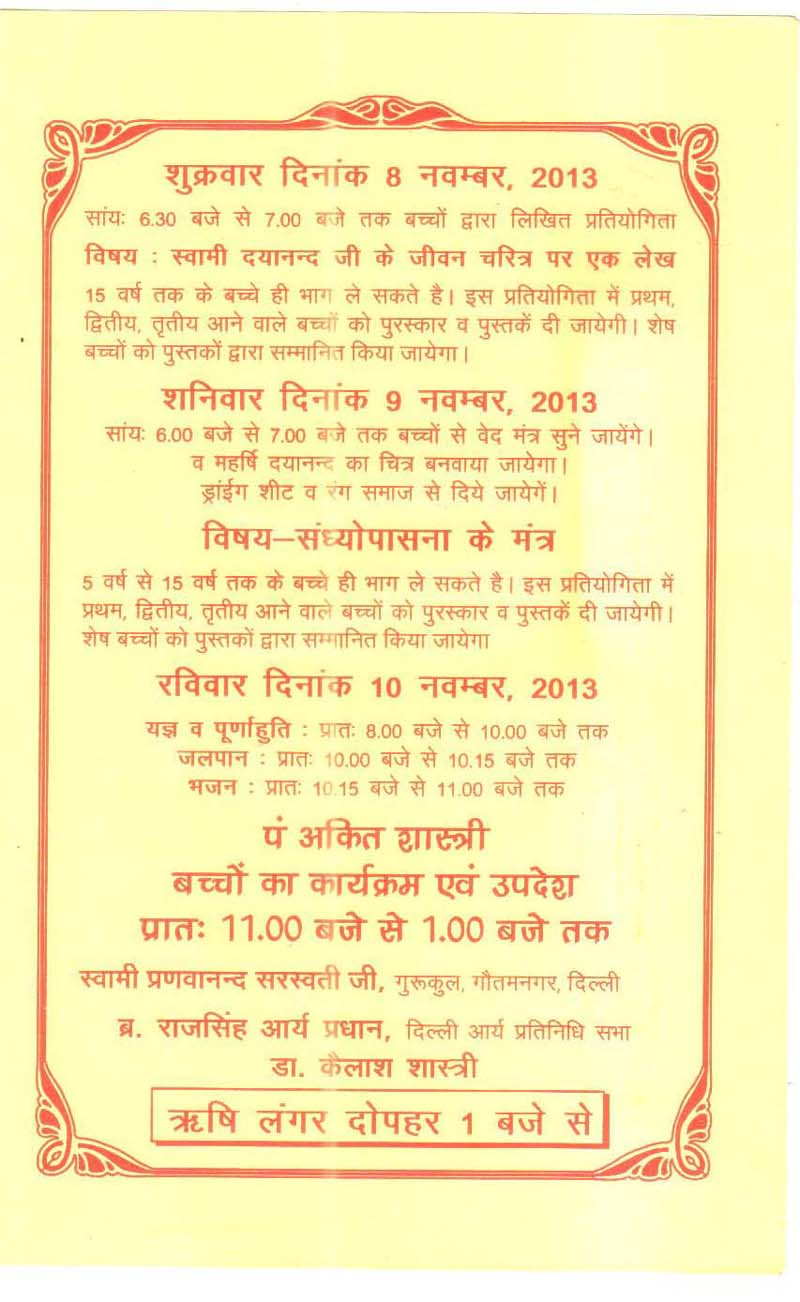 शुक्रवार दिनांक 8 नवम्बर, 2013
सांयः 6.30 बजे से 7.00 बजे तक बच्चों द्वारा लिखित प्रतियोगिता
विषय : स्वामी दयानन्द जी के जीवन चरित्र पर एक लेख
15 वर्ष तक के बच्चे ही भाग ले सकते है। इस प्रतियोगिता में प्रथम,
द्वितीय, तृतीय आने वाले बच्चों को पुरस्कार व पुस्तकें दी जायेगी। शेष
बच्चों को पुस्तकों द्वारा सम्मानित किया जायेगा।
शनिवार दिनांक 9 नवम्बर, 2013
सांयः 6.00 बजे से 7.00 बजे तक बच्चों से वेद मंत्र सुने जायेंगे।
व महर्षि दयानन्द का चित्र बनवाया जायेगा।
ड्रांईग शीट व रंग समाज से दिये जायेगें।
विषय–संध्योपासना के मंत्र
5 वर्ष से 15 वर्ष तक के बच्चे ही भाग ले सकते है। इस प्रतियोगिता में
प्रथम, द्वितीय, तृतीय आने वाले बच्चों को पुरस्कार व पुस्तकें दी जायेगी।
शेष बच्चों को पुस्तकों द्वारा सम्मानित किया जायेगा
रविवार दिनांक 10 नवम्बर, 2013
यज्ञ व पूर्णाहुति : प्रातः 8.00 बजे से 10.00 बजे तक
जलपान : प्रातः 10.00 बजे से 10.15 बजे तक
भजन : प्रातः 10.15 बजे से 11.00 बजे तक
पं अकित शास्त्री
बच्चों का कार्यक्रम एवं उपदेश
प्रातः 11.00 बजे से 1.00 बजे तक
स्वामी प्रणवानन्द सरस्वती जी, गुरूकुल, गौतमनगर, दिल्ली
ब्र. राजसिंह आर्य प्रधान, दिल्ली आर्य प्रतिनिधि सभा
डा. कैलाश शास्त्री
ऋषि लंगर दोपहर 1 बजे से